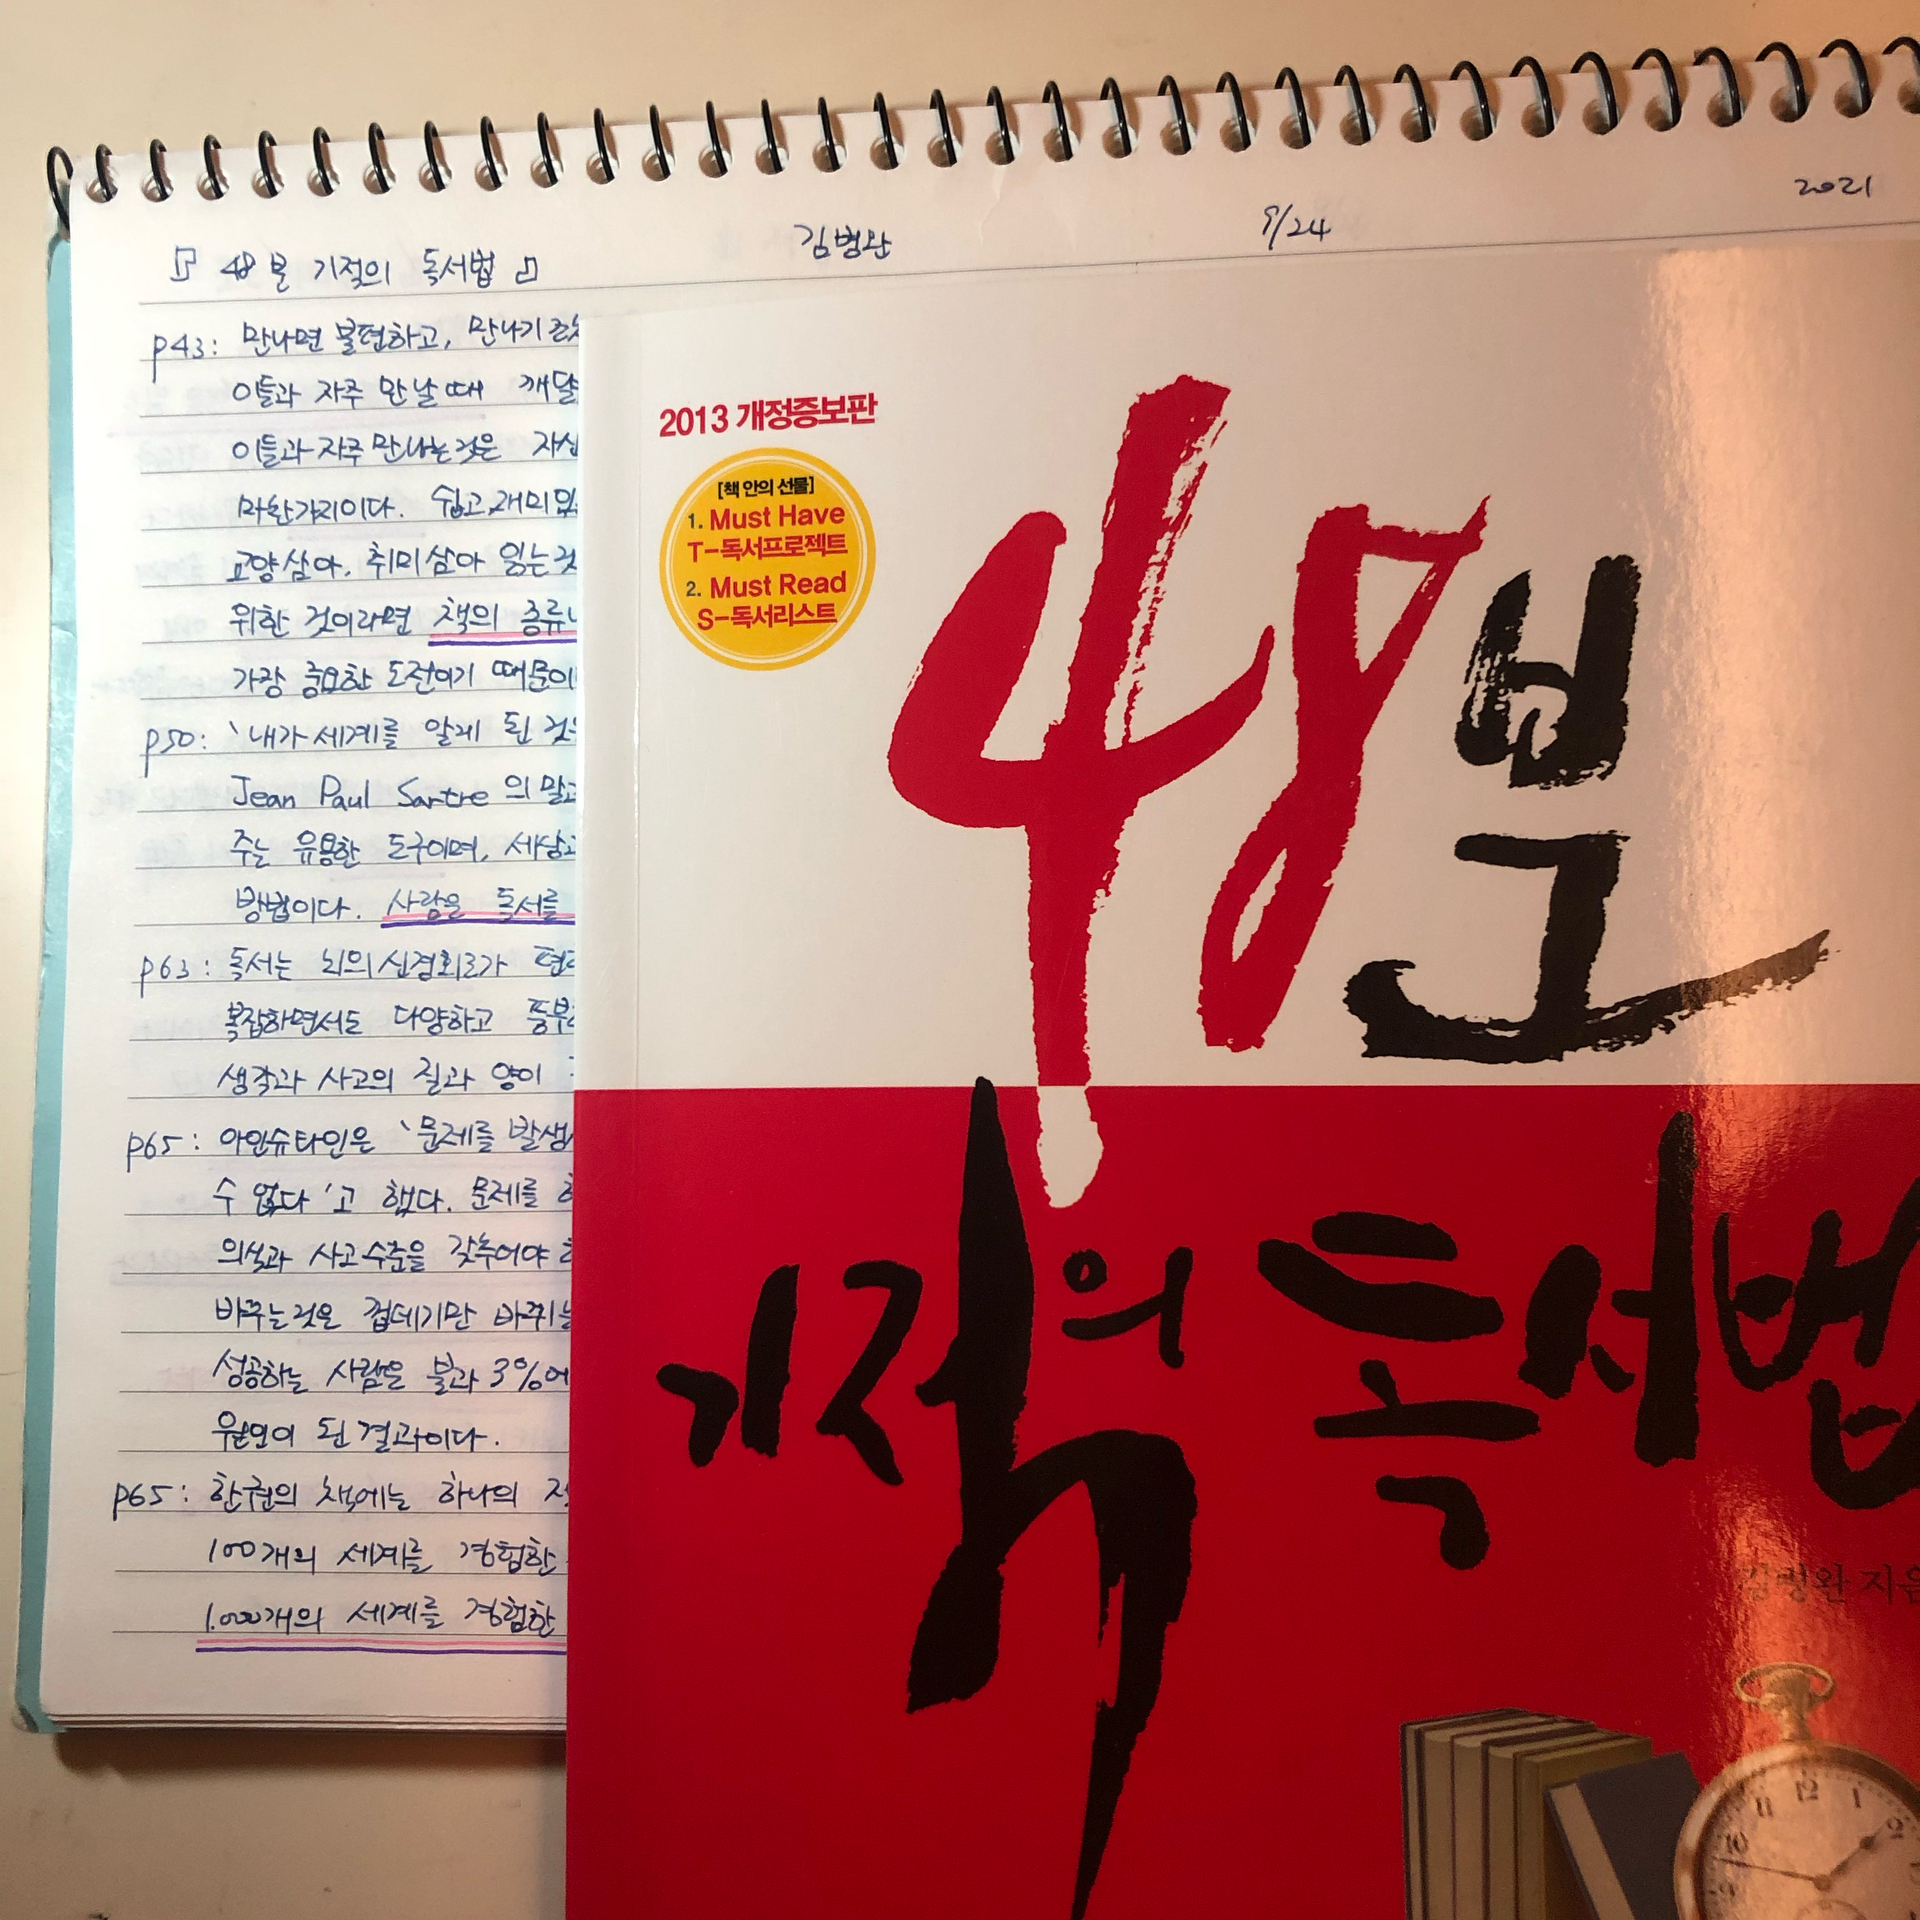 48분 기적의 독서법
김병완
9/24
2021
p43: 만나면 불편하고, 만나기
이들과 자주 만날 때
이들과 자주 만나는 것은 자신
마찬가지이다. 쉽고, 재미있
교양삼아, 취미삼아 읽는 것
위한 것이라면 책의 종류
가장 중요한 도전이기 때문이
p50: '내가 세계를 알게 된 것
Jean Paul Sartre 의 말
주는 유용한 도구이며, 세상
방법이다. 사람은 독서를
p63: 독서는 뇌의 신경회로가
복잡하면서도 다양하고 풍부
생각과 사고의 질과 양이
p65: 아인슈타인은 '문제를 발생
수 없다'고 했다. 문제를
의식과 사고수준을 갖추어야
바꾸는것은 껍데기만 바뀌는
성공하는 사람은 불과 3%에
원인이 된 결과이다.
p65: 한권의 책에는 하나의
100개의 세계를 경험한
1.000개의 세계를 경험한
2013 개정증보판
[책 안의 선물]
1. Must Have
T-독서프로젝트
2. Must Read
S-독서리스트
48분
기적의 독서법
김병완 지음
11 12 1
10 2
9